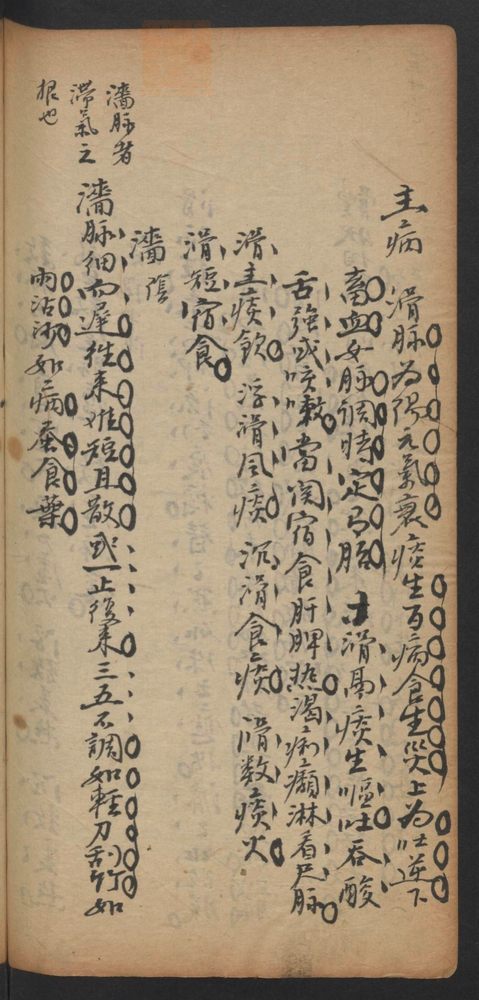 主病 滑脉为陽元氣衰痰生百病食生災上为吐逆下
畜血女脉調時定有胎 寸滑鬲痰生嘔吐吞酸
舌強或咳嗽當関宿食肝脾热渴痢癲淋看尺脉
滑主痰飲 浮滑風痰 沉滑食痰 滑数痰火
滑短宿食
濇 陰
濇脉細而遲往来难短且散或一止復来三五不調如輕刀刮竹如
雨沾沙如病蚕食葉
濇脉者
滞氣之
根也